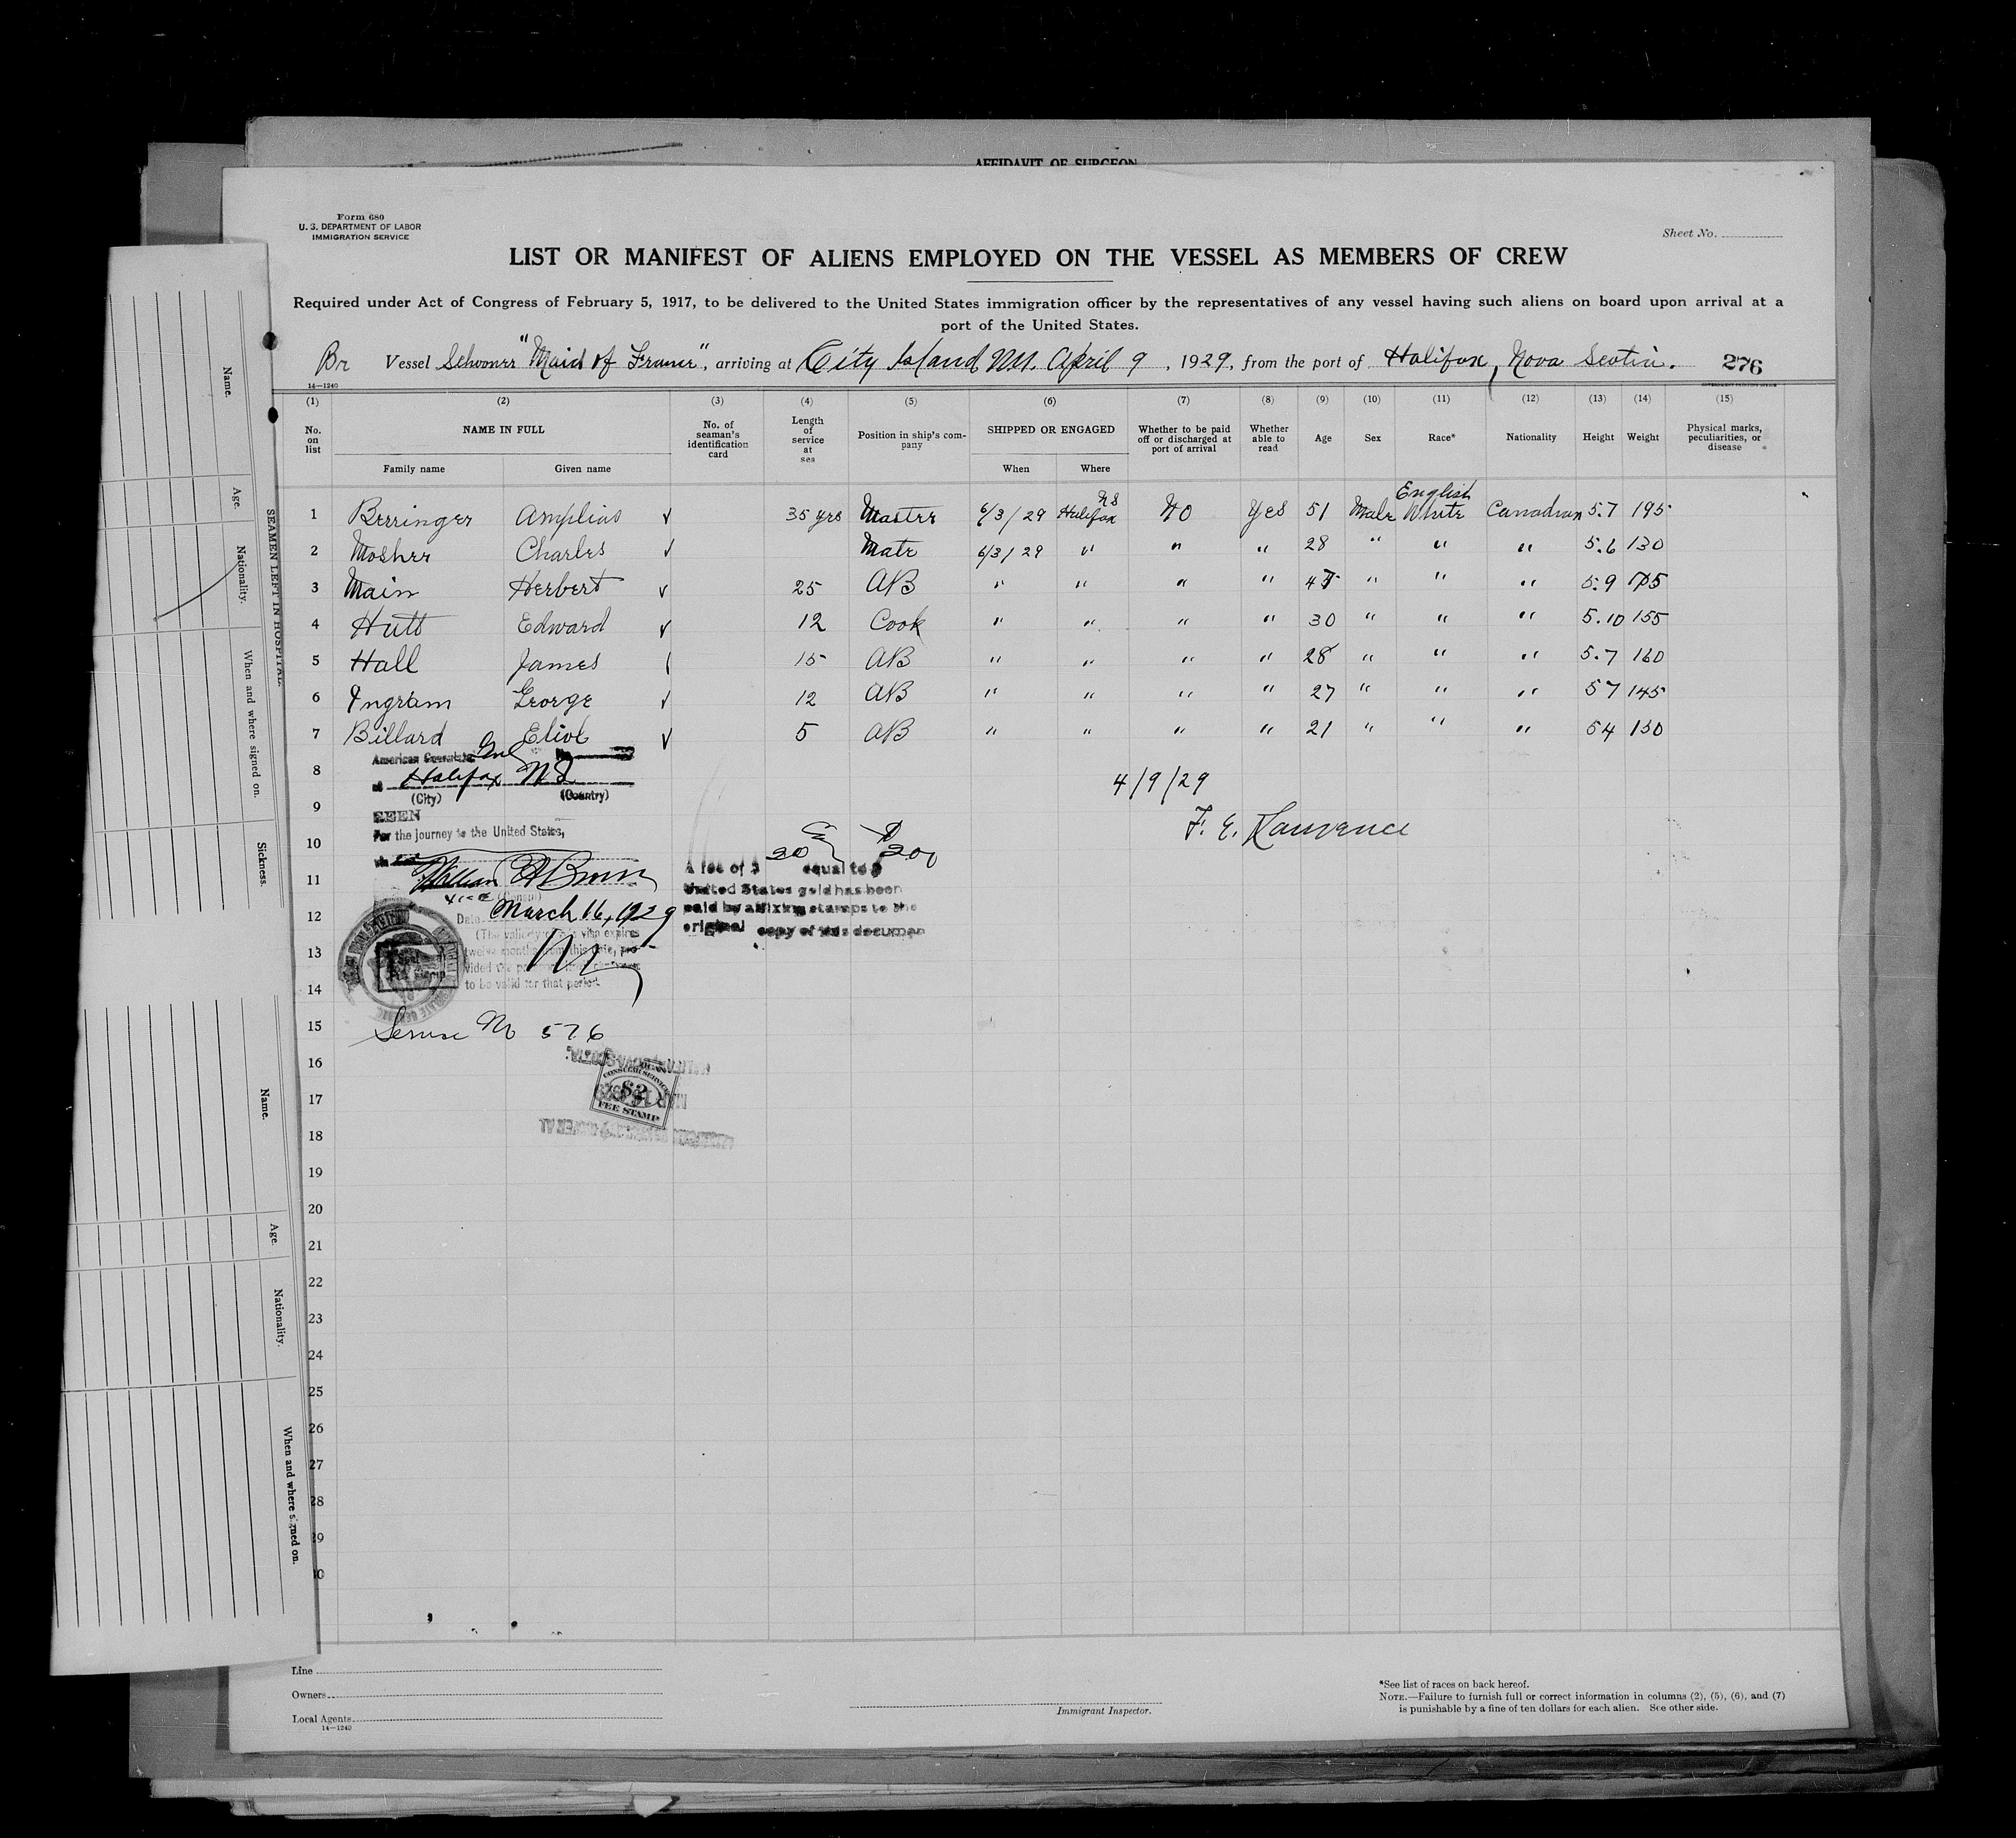 AFFIDAVIT OF SURGEON
Form 680
U. S. DEPARTMENT OF LABOR
IMMIGRATION SERVICE
Sheet No.
LIST OR MANIFEST OF ALIENS EMPLOYED ON THE VESSEL AS MEMBERS OF CREW
Required under Act of Congress of February 5, 1917, to be delivered to the United States immigration officer by the representatives of any vessel having such aliens on board upon arrival at a
port of the United States.
Br Vessel Schooner "Maid of France", arriving at City Island NY. April 9, 1929, from the port of Halifax, Nova Scotia. 276
14—1240
(1) (2) (3) (4) (5) (6) (7) (8) (9) (10) (11) (12) (13) (14) (15)
No. on list NAME IN FULL No. of seaman's identification card Length of service at sea Position in ship's company SHIPPED OR ENGAGED Whether to be paid off or discharged at port of arrival Whether able to read Age Sex Race* Nationality Height Weight Physical marks, peculiarities, or disease
Family name Given name When Where
N S English
1 Berringer Amplias √ 35 yrs Master 6/3/29 Halifax No Yes 51 Male White Canadian 5.7 195
2 Mosher Charles √ Mate 6/3/29 " " " 28 " " " 5.6 130
3 Main Herbert √ 25 AB " " " " " " " 5.9 175
4 Hutt Edward √ 12 Cook " " " " 30 " " " 5.10 155
5 Hall James 15 AB " " " " 28 " " " 5.7 160
6 Ingram George √ 12 AB " " " " 27 " " " 57 145
7 Billard √ 5 AB " " " " 21 " " " 54 130
American Gen No.
8 at Halifax N S 4/9/29
(City) (Country)
9 SEEN
For the journey to the United States, F. E. Lawrence
10 via
20 200
11 William A Brown A fee of $ equal to $
Vice (Consul) United States gold has been
12 Date March 16, 1929 paid by affixing stamps to the
(The validity of this visa expires original copy of this document
13 twelve months from this date, pro-
vided the
14 to be valid for that period.
15 Service No 576
16 HALIFAX, NOVA SCOTIA.
CONSULAR SERVICE
17 $2
FEE STAMP
18
19
20
21
22
23
24
25
26
27
28
29
30
Line
Owners
Local Agents
14—1240
Immigrant Inspector.
*See list of races on back hereof.
NOTE.—Failure to furnish full or correct information in columns (2), (5), (6), and (7)
is punishable by a fine of ten dollars for each alien. See other side.
SEAMEN LEFT IN HOSPITAL.
Name. Age. Nationality. When and where signed on. Sickness.
Name. Age. Nationality. When and where signed on.